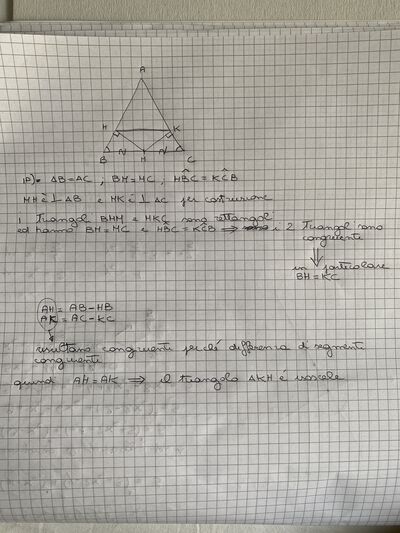 A
H K
B M C
IP) = AB = AC ; BM = MC ; HB̂C = KĈB
MH è ⊥ AB e MK è ⊥ AC per costruzione
I Triangoli BHM e MKC sono rettangoli
ed hanno BM = MC e HB̂C = KĈB ⇒ i 2 triangoli sono
congruenti
in particolare
BH = KC
AH = AB - HB
AK = AC - KC
risultano congruenti perché differenza di segmenti
congruenti
quindi AH = AK ⇒ il triangolo AKH è isoscele